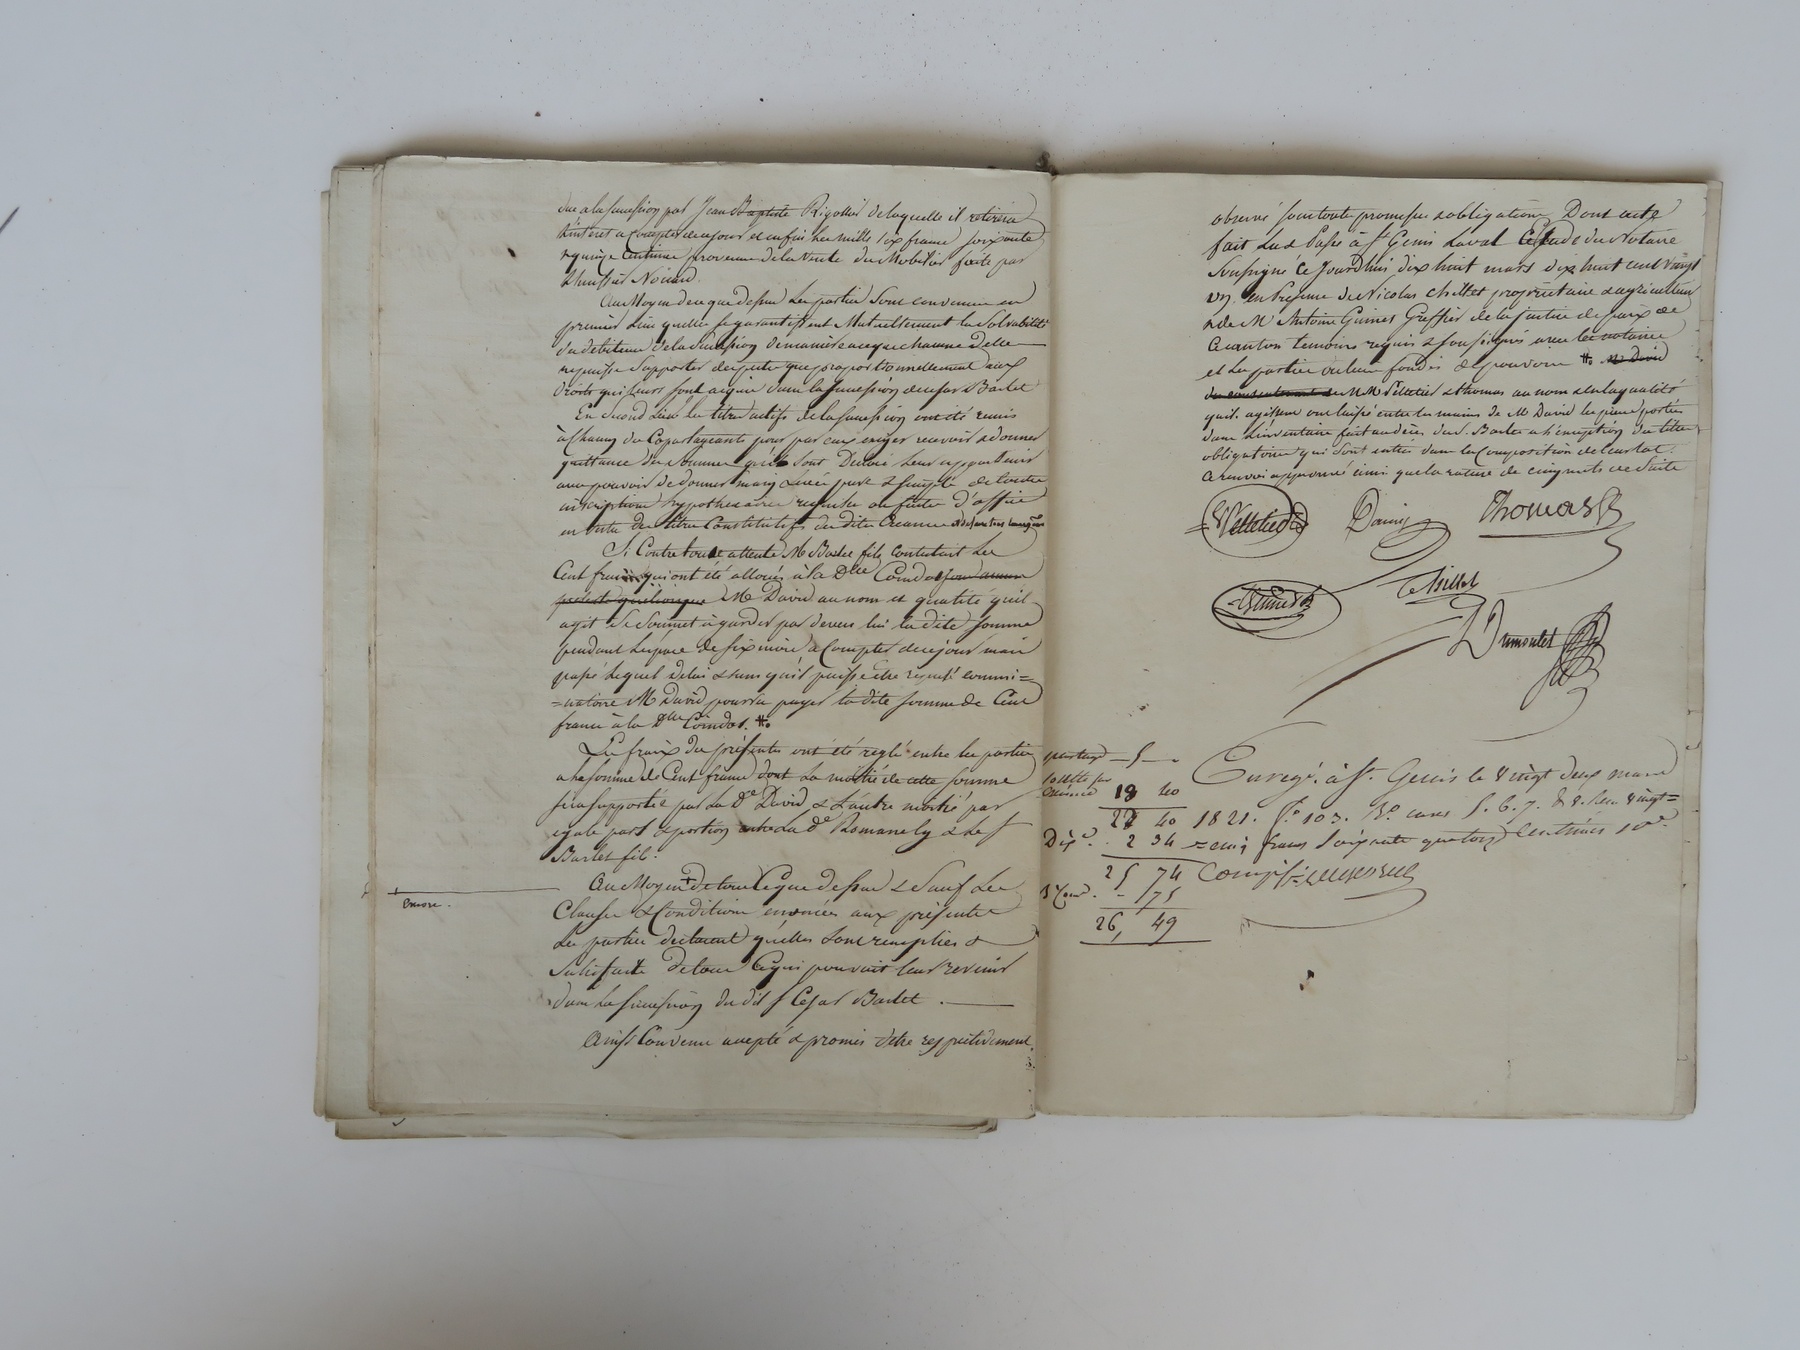 due a la succession par Jean Baptiste Rigollier de laquelle il retirera
l'intérêt a compter de ce jour et enfin les mille six francs soixante
& quinze centimes provenus de la vente du Mobilier faite par
l'huissier
Au Moyen de ce que dessus les parties sont convenues en
premier lieu quelles se garantissent Mutuellement la Solvabilité
des débiteurs de la succession de manière a ce que chacune d'elle
ne puisse supporter de perte que proportionnellement aux
droits qui leurs sont acquis dans la succession de César Barlet
En second lieu les titres actifs de la succession ont été remis
à chacun des Copartageants pour par eux exiger recevoir & donner
quittance des sommes qu'ils sont Devoir leur appartenir
avec pouvoir de donner main levée pure & simple de toute
inscription hypothécaire requise ou faite d'office
en vertu des titres Constitutifs des dites Creances
Si Contre toute attente Mr Barlet fils contestait les
Cent francs qui ont été alloués à la Dlle Coindat sous aucun
prétexte quelconque Mr David au nom et qualité qu'il
agit se soumet à garder par devers lui la dite somme
pendant l'espace de six mois a Compter de ce jour mais
passé lequel délai & sans qu'il puisse être réputé commi=
=natoire Mr David pourra payer la dite somme de Cent
francs à la Dlle Coindat. #.
Les fraix des présentes ont été réglé entre les parties
a la somme de Cent francs dont la moitié de cette somme
sera supportée par la De David & l'autre moitié par
egale part & portion entre la De Romanely & le sr
Barlet fils.
Au Moyen de tout ce que dessus & Sauf les
Clauses & Conditions enoncées aux présentes
les parties declarent qu'elles sont remplies &
satisfaite de tout ce qui pouvait leur revenir
dans la succession du dit sr Cesar Barlet.
Ainsi Convenu accepté & promis d'etre respectivement
encore.
observé sous toute promesse & obligations Dont acte
fait Lu & Passé à St Genis Laval Etude du Notaire
Soussigné Ce jourd'hui dix huit mars dix huit cent Vingt
un en Présence de Nicolas Chillet propriétaire & agriculteur
& de Mr Antoine Guines Greffier de la justice de paix de
Ce canton temoins requis & soussignés avec le notaire
et les parties ou leurs fondés de pouvoirs #. Mr David
MM Pelletier & Thomas au nom & en la qualité
qu'ils agissent ont laissé entre les mains de Mr David les pieces portées
dans l'inventaire fait au décès du S. Barlet a l'exception des titres
obligatoires qui sont entrés dans la Composition de leur lot.
a renvoi approuvé ainsi que la rature de cinq mots de suite
Pelletier David Thomas
Chillet
Guines
Dumoulet
partage — 5 —
18 40
27 40
Dixe. 2 34
25 74
- 75
26, 49
Enregé. à St. Genis le vingt deux mars
1821. fo. 103. Vo. cases 5. 6. 7. & 8. Reçu vingt=
=cinq francs soixante quatorze Centimes 10e.
Compris